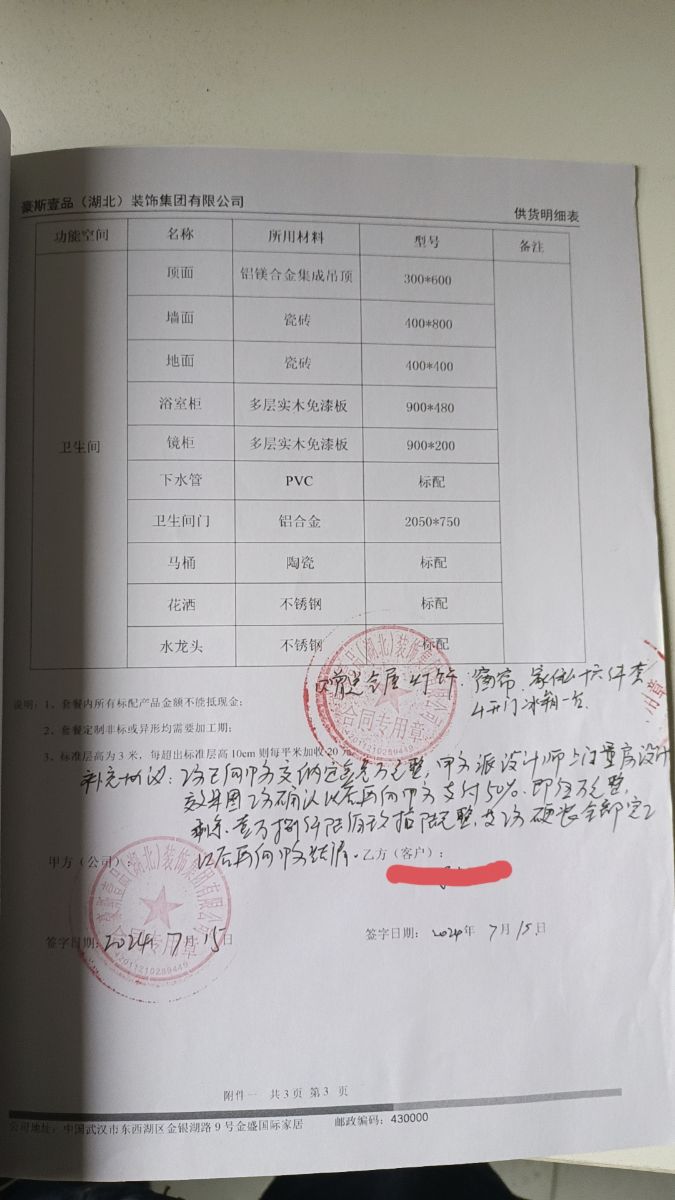 豪斯壹品（湖北）装饰集团有限公司
供货明细表
功能空间 名称 所用材料 型号 备注
卫生间
顶面 铝镁合金集成吊顶 300*600
墙面 瓷砖 400*800
地面 瓷砖 400*400
浴室柜 多层实木免漆板 900*480
镜柜 多层实木免漆板 900*200
下水管 PVC 标配
卫生间门 铝合金 2050*750
马桶 陶瓷 标配
花洒 不锈钢 标配
水龙头 不锈钢 标配
全屋灯饰、窗帘、家私十六件套
4开门冰箱一台
合同专用章
4201121028944
说明：1、套餐内所有标配产品金额不能抵现金；
2、套餐定制非标或异形均需要加工期；
3、标准层高为3米，每超出标准层高10cm则每平米加收20元
补充协议：乙方已向甲方交纳定金 万元整，甲方派设计师上门量房设计
效果图乙方确认以后再向甲方支付50%.即伍万元整，
剩余 壹万捌仟陆佰玖拾 元整 乙方硬装全部完工
以后再向甲方结清.
甲方（公司）：
乙方（客户）：
签字日期：2024年7月15日
签字日期：2024年7月15日
豪斯壹品(湖北)装饰集团有限公司
合同专用章
附件一 共3页 第3 页
公司地址：中国武汉市东西湖区金银湖路9号金盛国际家居 邮政编码：430000